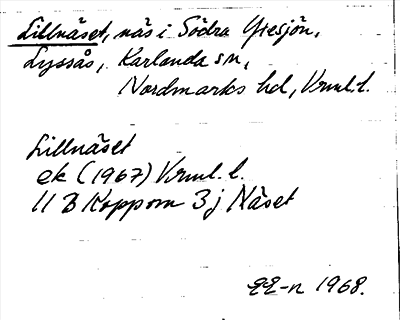 Lillnäset, näs i Södra Ytesjön,
Lyssås, Karlanda sn,
Nordmarks hd, Vrml. l.
Lillnäset
ek (1967) Vrml. l.
11 B Koppom 3 j Näset
1968.